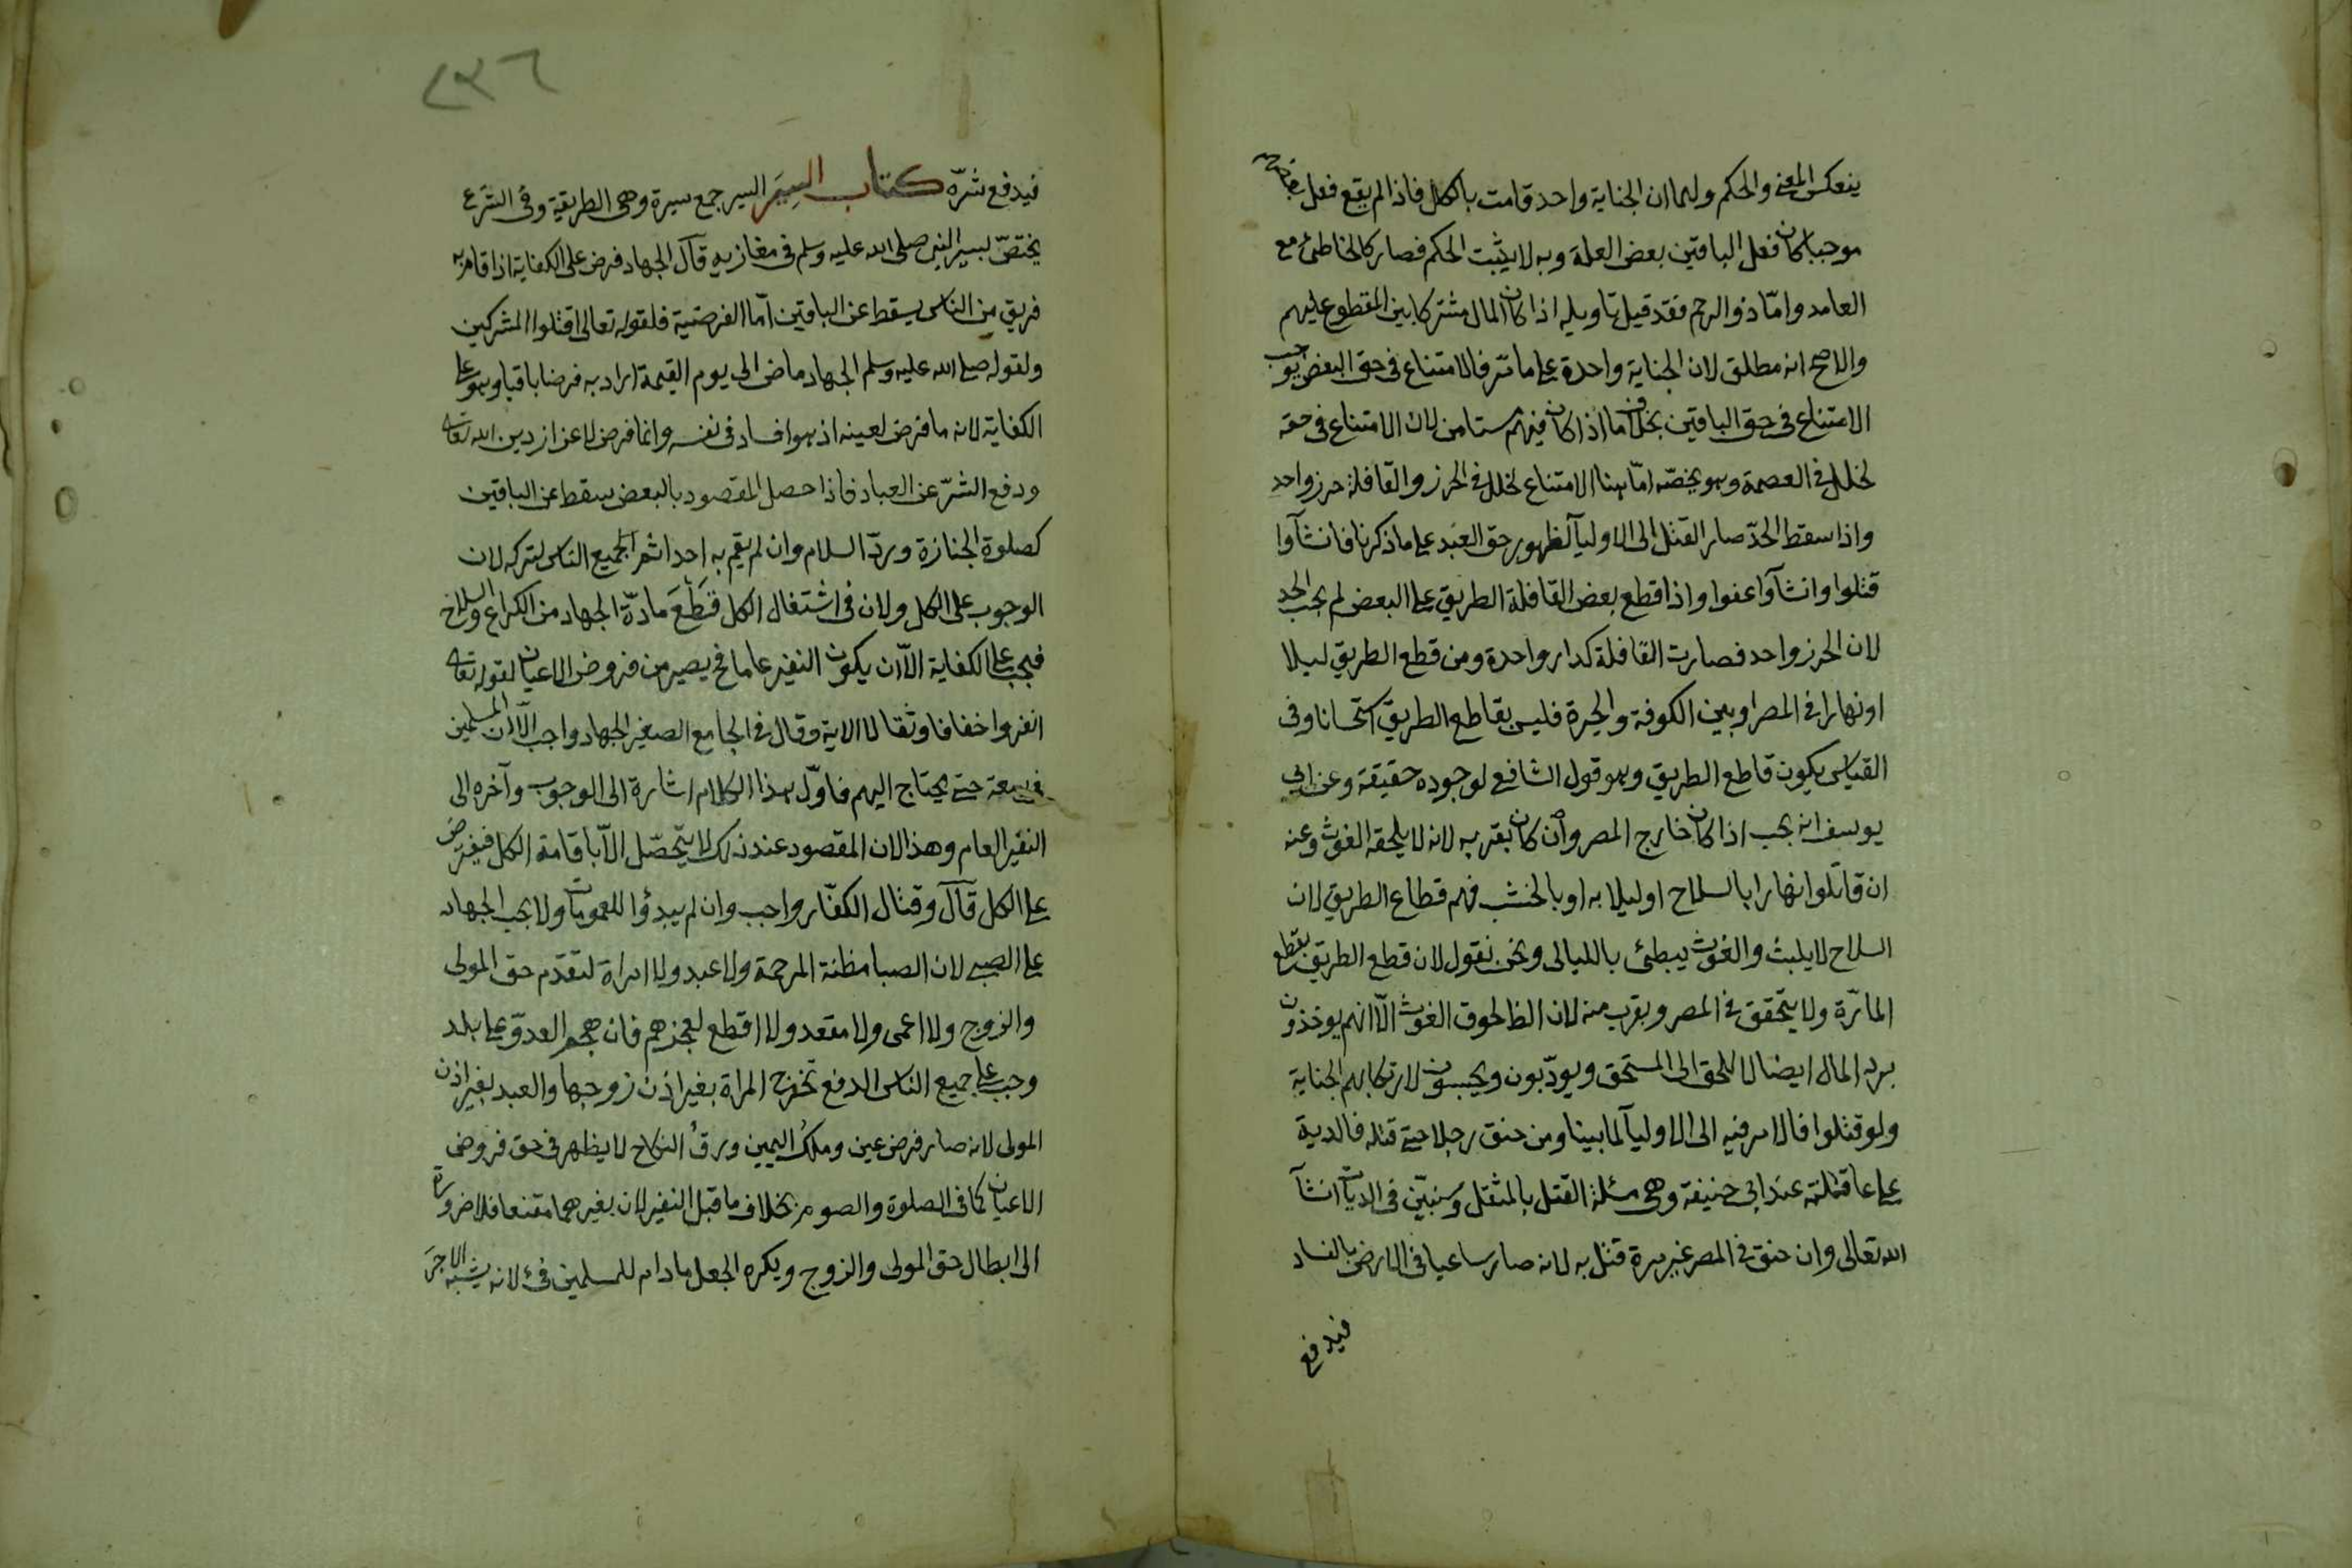 ينعكس المعنى والحكم ولهما ان الجناية واحد قامت بالكل فاذا لم يقع فعل بعضهم
موجبا كان فعل الباقين بعض العلة وبه لا يثبت الحكم فصار كالخاطئ مع
العامد واما ذو الرحم فقد قيل تاويله اذا كان المال مشتركا بين المقطوع عليهم
والاصح انه مطلق لان الجناية واحدة على ما مر فالامتناع في حق البعض يوجب
الامتناع في حق الباقين بخلاف ما اذا كان فيهم مستامن لان الامتناع في حقه
لخلل في العصمة وهو يخصه اما هنا الامتناع لخلل في الحرز والقافلة حرز واحد
واذا سقط الحد صار القتل الى الاوليآ لظهور حق العبد على ما ذكرنا فان شآوا
قتلوا وان شآوا عفوا واذا قطع بعض القافلة الطريق على البعض لم يجب الحد
لان الحرز واحد فصارت القافلة كدار واحدة ومن قطع الطريق ليلا
او نهارا في المصر او بين الكوفة والحيرة فليس بقاطع الطريق استحسانا وفي
القياس يكون قاطع الطريق وهو قول الشافعي لوجوده حقيقة وعن ابي
يوسف انه يجب اذا كان خارج المصر وان كان بقربه لانه لا يلحقه الغوث وعنه
ان قاتلوا نهارا بالسلاح او ليلا به او بالخشب فهم قطاع الطريق لان
السلاح لا يلبث والغوث يبطئ بالليالي ونحن نقول لان قطع الطريق بقطع
المارّة ولا يتحقق في المصر وبقرب منه لان الظ لحوق الغوث الّا انهم يوخذون
برد المال ايضا للحق الى المستحق ويودّبون ويحبسون لارتكابهم الجناية
ولو قتلوا فالامر فيه الى الاوليآ لما بينا ومن خنق رجلا حتى قتله فالدية
على عاقلته عند ابي حنيفة وهي مسئلة القتل بالمثقل وسنبيّن في الديات ان شآ
الله تعالى وان خنق في المصر غير مرة قتل به لانه صار ساعيا في الارض بالفساد
فيدفع
٢٣٦
فيدفع شرّه كتاب السِيَر السير جمع سيرة وهي الطريقة وفي الشرع
يختصّ بسير النبي صلى الله عليه وسلم في مغازيه قآل الجهاد فرض على الكفاية اذا قام به
فريق من الناس يسقط عن الباقين امّا الفرضية فلقوله تعالى اقتلوا المشركين
ولقوله صلى الله عليه وسلم الجهاد ماض الى يوم القيمة اراد به فرضا باقيا وهو على
الكفاية لانه ما فرض لعينه اذ هو افساد في نفسه وانما فرض لاعزاز دين الله تعالى
ودفع الشرّ عن العباد فاذا حصل المقصود بالبعض سقط عن الباقين
كصلوة الجنازة وردّ السلام وان لم يقم به احد اثم الجميع الناس لتركه لان
الوجوب على الكل ولان في اشتغال الكل قَطعَ مادّة الجهاد من الكراع والسلاح
فيجب على الكفاية الّا ان يكون النفير عاما فح يصير من فروض الاعيان لقوله تعالى
انفروا خفافا وثقالا الاية وقال في الجامع الصغير الجهاد واجب الّا ان المسلمين
في سعة حتى يحتاج اليهم فاوّل هذا الكلام اشارة الى الوجوب وآخره الى
النفير العام وهذا لان المقصود عند ذلك لا يتحصّل الّا باقامة الكل فيفترض
على الكل قآل وقتال الكفّار واجب وان لم يبدؤا للعمومات ولا يجب الجهاد
على الصبي لان الصبا مظنة المرحمة ولا عبد ولا امراة لتقدّم حق المولى
والزوج ولا اعمى ولا مقعد ولا اقطع لعجزهم فان هجم العدوّ على بلد
وجب على جميع الناس الدفع تخرج المراة بغير اذن زوجها والعبد بغير اذن
المولى لانه صار فرض عين وملك اليمين ورقّ النكاح لا يظهر في حق فروض
الاعيان كما في الصلوة والصوم بخلاف ما قبل النفير لان بغيرهما مقنعا فلا ضرورة
الى ابطال حق المولى والزوج ويكره الجعل ما دام للمسلمين فئ لانه يشبه الاجر